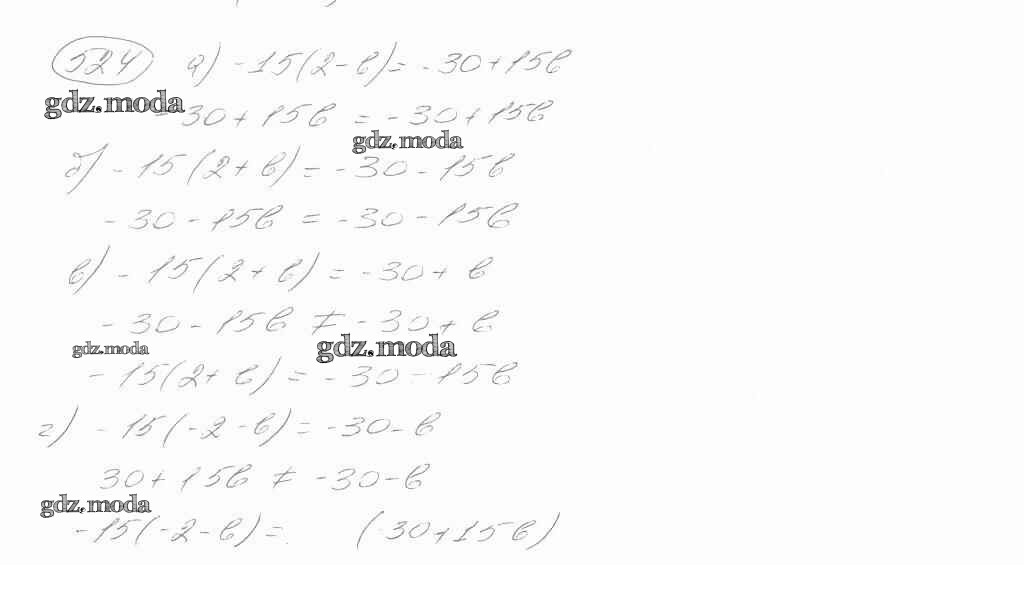 524 а) -15(2-в)= -30+15в
gdz.moda
-30+15в = -30+15в
gdz.moda
б) -15(2+в)= -30-15в
-30-15в = -30-15в
в) -15(2+в)= -30+в
-30-15в ≠ -30+в
gdz.moda
gdz.moda
-15(2+в)= -30-15в
г) -15(-2-в)= -30-в
30+15в ≠ -30-в
gdz.moda
-15(-2-в)= (-30+15в)